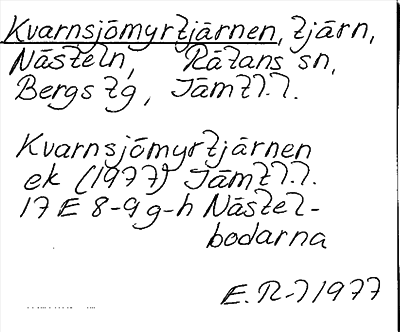 Kvarnsjömyrtjärnen, tjärn,
Nästeln, Rätans sn,
Bergs tg, Jämtl.
Kvarnsjömyrtjärnen
ek (1977) Jämtl.
17 E 8-9 g-h Nästel-
bodarna
1977